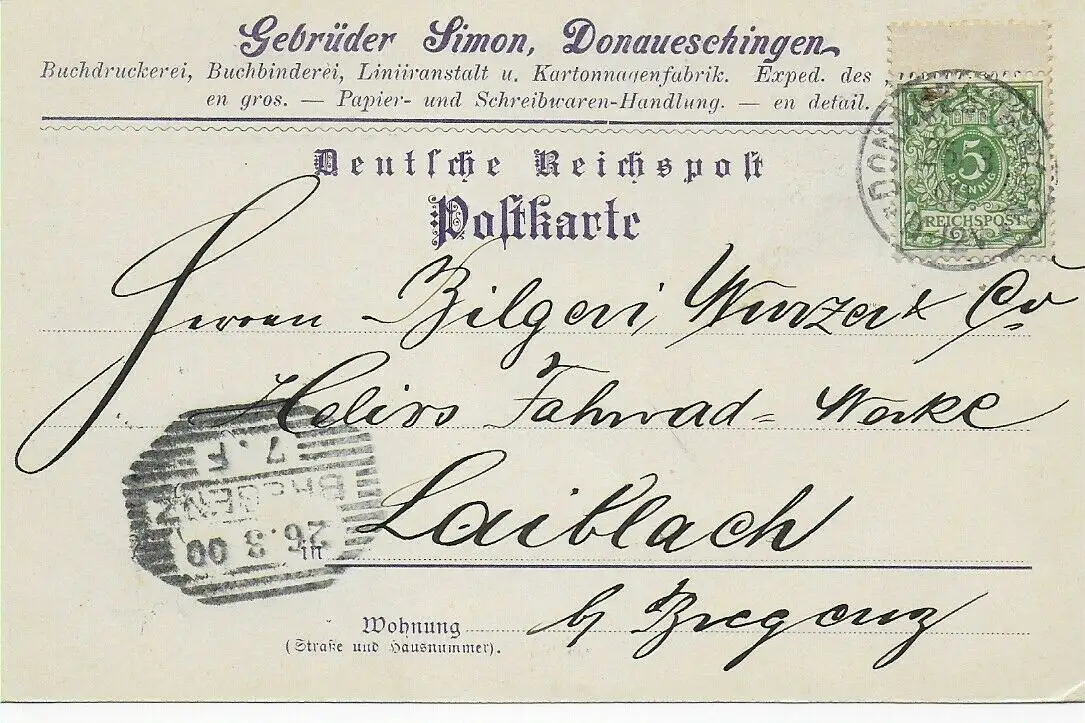 Gebrüder Simon, Donaueschingen
Buchdruckerei, Buchbinderei, Liniiranstalt u. Kartonnagenfabrik. Exped. des
en gros. — Papier- und Schreibwaren-Handlung. — en detail.
Deutsche Reichspost
Postkarte
5
PFENNIG
REICHSPOST
Herren Bilgeri Wurzer & Co
Helios Fahrrad-Werke
Laiblach
in
by Bregenz
7. F
BREGENZ
26. 3 00
Wohnung
(Straße und Hausnummer).